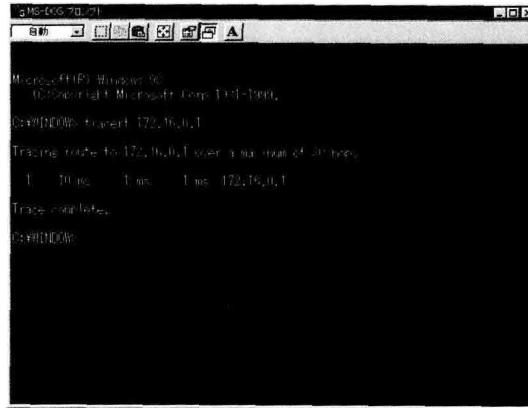 MS-DOS プロンプト
自動
A
Microsoft(R) Windows 98
(C)Copyright Microsoft Corp 1981-1999.
C:¥WINDOWS>tracert 172.16.0.1
Tracing route to 172.16.0.1 over a maximum of 30 hops
1 10 ms 1 ms 1 ms 172.16.0.1
Trace complete.
C:¥WINDOWS>